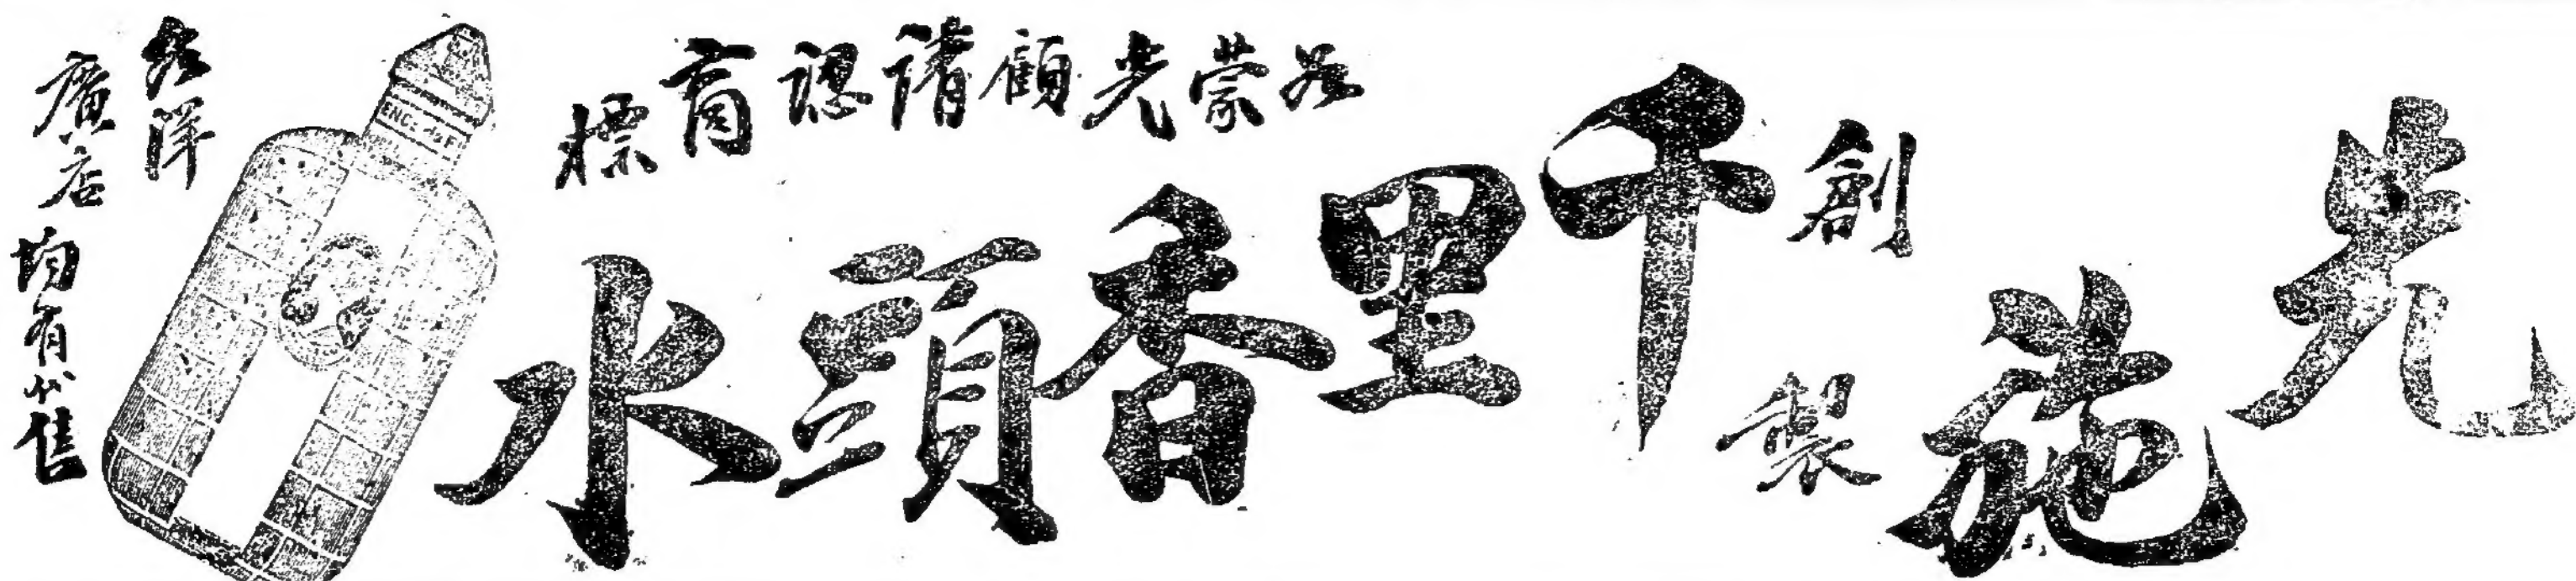 先施
創製
千里香頭水
如蒙光顧請認商標
各洋
廣店均有代售